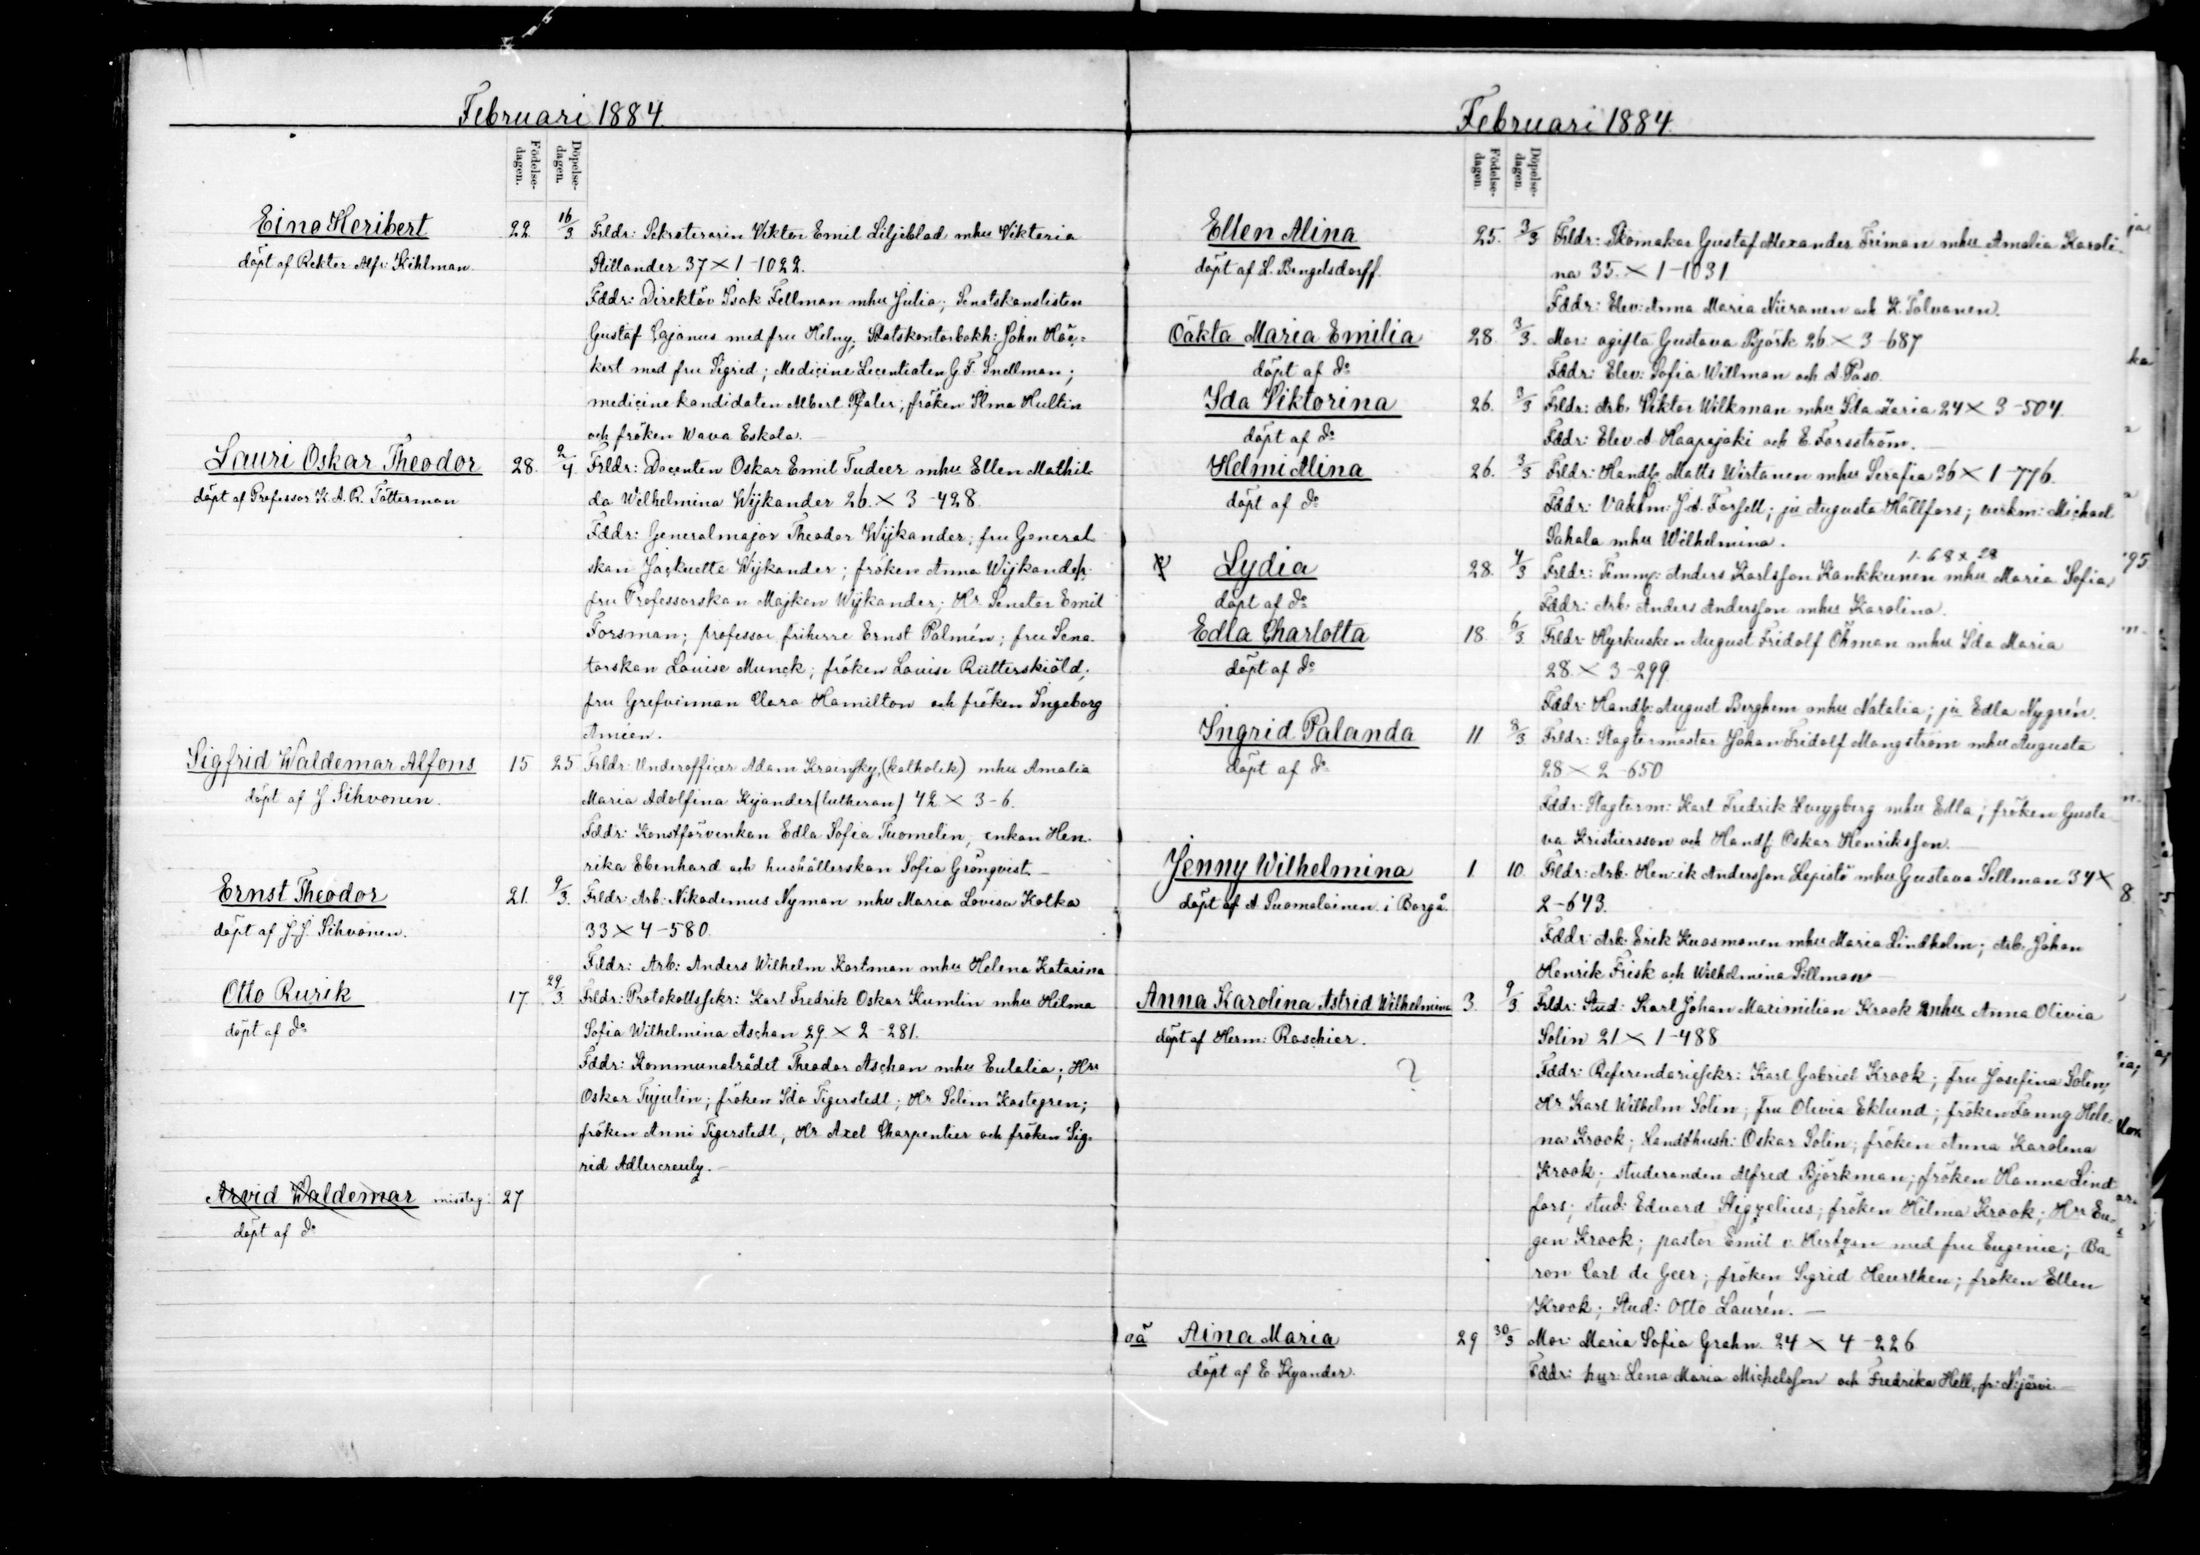 Februari 1884.
Födelse-dagen.
Döpelse-dagen.
Eino Heribert 22 16/3 Frldr: Sekreteraren Viktor Emil Liljeblad mhu Viktoria
döpt af Rektor Alfr: Kihlman. 37 × 1-1022.
Fddr: Direktör Isak Fellman mhu Julia; Senatskanslisten
Gustaf Cajanus med fru Helny; Statskontorbokh: John Häc-
kert med fru Sigrid; Medicine Licentiaten G. F. Snellman;
medicine kandidaten Albert Pfaler; fröken Ilma Hultin
och fröken Wava Eskola.
Lauri Oskar Theodor 28. 2/4 Frldr: Docenten Oskar Emil Tudeer mhu Ellen Mathil-
döpt af Professor K. A. R. Tötterman da Wilhelmina Wijkander 26. × 3-428.
Fddr: Generalmajor Theodor Wijkander; fru General-
skan Jackuette Wijkander; fröken Anna Wijkander;
fru Professorskan Majken Wijkander; Hr Senator Emil
Forsman; professor friherre Ernst Palmén; fru Sena-
torskan Louise Munck; fröken Louise Rütterskiöld;
fru Grefvinnan Clara Hamilton och fröken Ingeborg
Ameen.
Sigfrid Waldemar Alfons 15 25 Frldr: Underofficer Adam Krainsky, (katholik) mhu Amalia
döpt af J Sihvonen. Maria Adolfina Kyander (lutheran) 42 × 3-6.
Fddr: Konstförvinkan Edla Sofia Tuomelin, enkan Hen-
rika Ebenhard och hushållerskan Sofia Grönqvist.
Ernst Theodor 21. 9/3. Frldr: Arb: Nikodemus Nyman mhu Maria Lovisa Kolka
döpt af J. J. Sihvonen. 33 × 4-580.
Fddr: Arb: Anders Wilhelm Kortman mhu Helena Katarina
Otto Rurik 17. 29/3 Frldr: Protokollssekr: Karl Fredrik Oskar Kumlin mhu Hilma
döpt af do Sofia Wilhelmina Aschan 29. × 2-281.
Fddr: Kommunalrådet Theodor Aschan mhu Eulalia; Hrr
Oskar Tujulin; fröken Ida Tigerstedt; Hr Selim Kastegren;
fröken Anni Tigerstedt, Hr Axel Charpentier och fröken Sig-
rid Adlercreutz.
Arvid Waldemar misstag: 27
döpt af do
Februari 1884.
Födelse-dagen.
Döpelse-dagen.
Ellen Alina 25. 3/3 Frldr: Skomakar Gustaf Alexander Friman mhu Amalia Karoli-
döpt af L. Bengelsdorff. na 35. × 1-1031
Fddr: Elev: Anna Maria Niiranen och K. Tolvanen.
Oäkta Maria Emilia 28. 3/3. Mor: ogifta Gustava Björk 26 × 3-687
döpt af do Fddr: Elev: Sofia Willman och A. Paso.
Ida Viktorina 26. 3/3 Frldr: Arb. Viktor Wilkman mhu Ida Maria 24 × 3-504.
döpt af do Fddr: Elev. A Haapajoki och E. Forsström.
Helmi Alina 26. 3/3 Frldr: Handb Matts Wirtanen mhu Serafia 36 × 1-776.
döpt af do Fddr: Vaktm: J. A. Forsell; ju Augusta Hällfors; verkm: Michael
Sahala mhu Wilhelmina.
1-68 × 28
Lydia 28. 4/3 Frldr: Timmr: Anders Karlsson Kankkunen mhu Maria Sofia,
döpt af do Fddr: Arb: Anders Andersson mhu Karolina.
Edla Charlotta 18. 6/3 Frldr: Hyrkusken August Fridolf Öhman mhu Ida Maria
döpt af do 28. × 3-299.
Fddr: Handb: August Berghem mhu Natalia; ju Edla Nygrén.
Ingrid Palanda 11 8/3 Frldr: Slagtermästar Johan Fridolf Mangström mhu Augusta
döpt af do 28 × 2-650
Fddr: Slagterm: Karl Fredrik mhu Edla; fröken Gusta-
va Kristiersson och Handf Oskar Henriksson.
Jenny Wilhelmina 1. 10 Frldr: Arb. Henrik Andersson Lepistö mhu Gustava Sillman 34 ×
döpt af A. Suomalainen i Borgå. 2-643.
Fddr: Arb. Erik Kuosmanen mhu Maria Lindholm; Arb. Johan
Henrik Frisk och Wilhelmina Sillman
Anna Karolina Astrid Wilhelmina 3. 9/3 Frldr: Stud: Karl Johan Maximilian Krook mhu Anna Olivia
döpt af Herm: Roschier. Solin 21 × 1-488
? Fddr: Referendariesekr: Karl Gabriel Krook; fru Josefina Solin;
Hr Karl Wilhelm Solin; fru Olivia Eklund; fröken Fanny Hele-
na Krook; Landthush: Oskar Solin; fröken Anna Karolina
Krook; studeranden Alfred Björkman; fröken Hanna Lind-
fors; stud: Edvard Stigzelius; fröken Hilma Krook; Hrr Eu-
gen Krook; pastor Emil v. Hertzen med fru Eugenie; Ba-
ron Carl de Geer; fröken Sigrid Heurthen; fröken Ellen
Krook; Stud: Otto Laurén.
oä Aina Maria 29 30/3 Mor: Maria Sofia Grahn. 24 × 4-226
döpt af E. Kyander. Fddr: hur: Lena Maria Michelsson och Fredrika Hell, fr: N:järvi